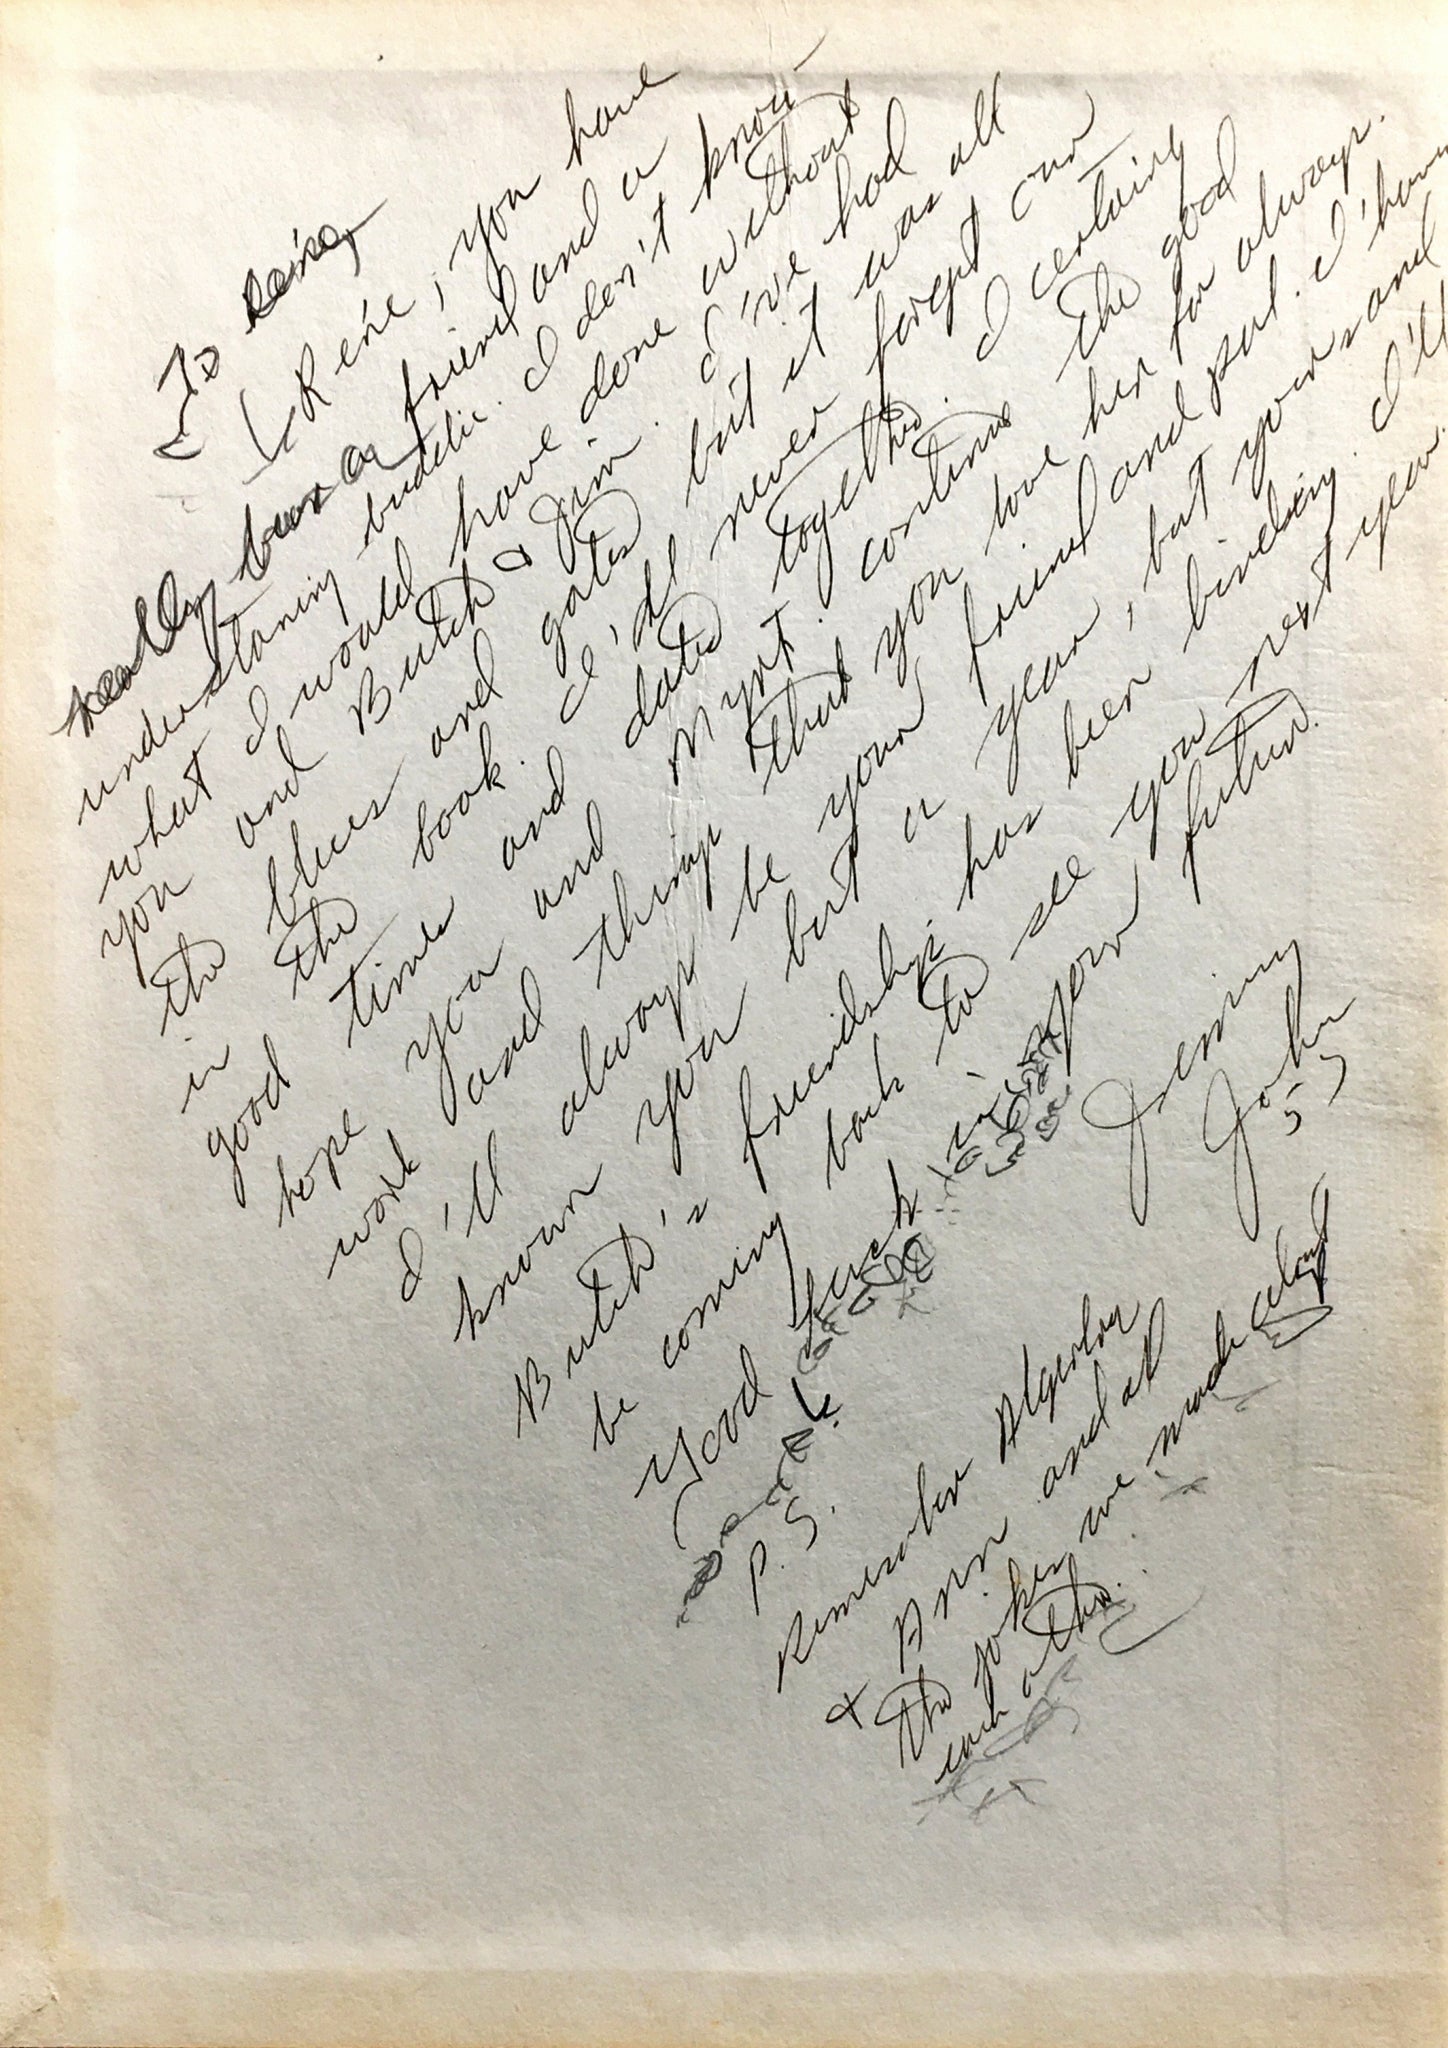 To Rene,
Rene, you have
really been a friend and a
understaning buddie. I don't know
what I would have done without
you and Butch & Jim. I've had
the blues and gates but it was all
in the book. I'll never forget our
good times and dates together. I certainly
hope you and Myrt. continue the good
work and things that you love her for always.
I'll always be your friend and pal. I have
known you but a year, but yours and
Butch's friendship has been binding. I'll
be coming back to see you next year.
Good luck in your future.
Jenny
John
57
P.S.
Remember
& Ann and all
the jokes we made about
each other.